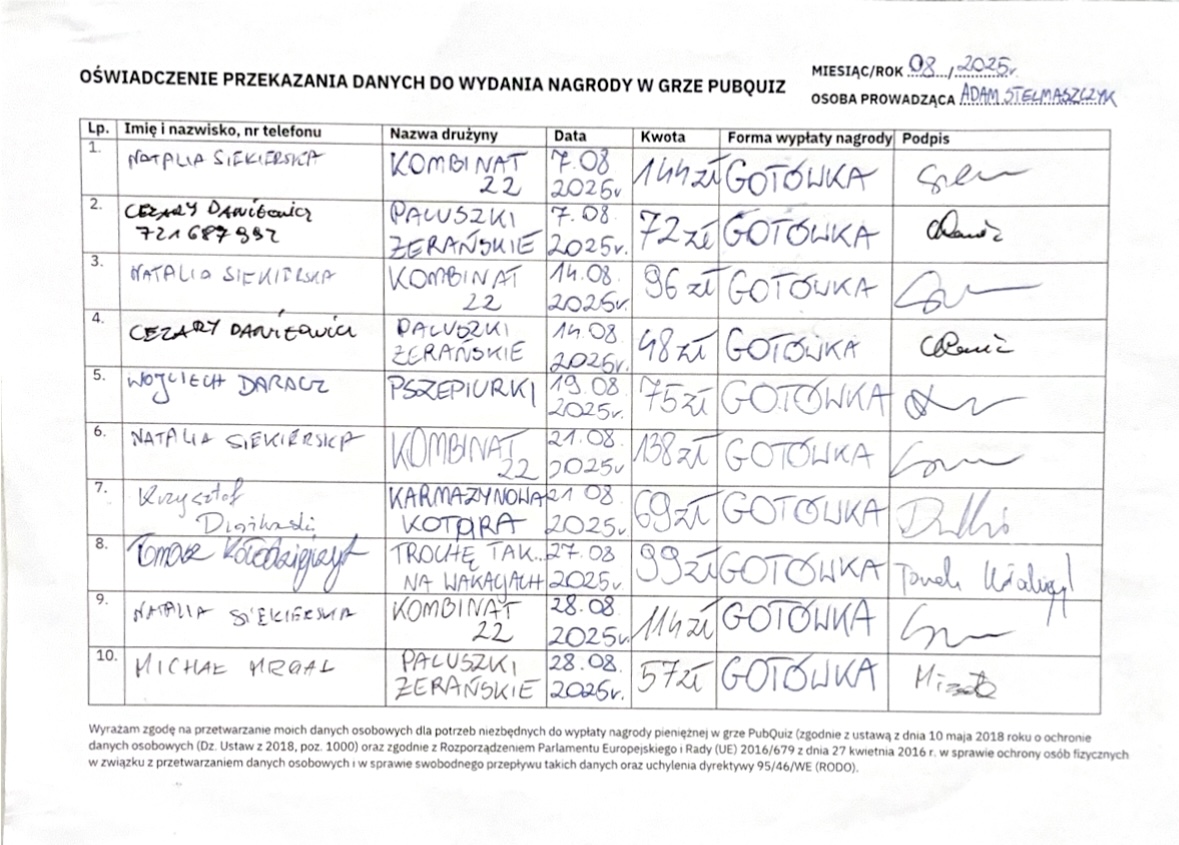 OŚWIADCZENIE PRZEKAZANIA DANYCH DO WYDANIA NAGRODY W GRZE PUBQUIZ
MIESIĄC/ROK 08 / 2025r.
OSOBA PROWADZĄCA ADAM STELMASZCZYK
Lp. Imię i nazwisko, nr telefonu Nazwa drużyny Data Kwota Forma wypłaty nagrody Podpis
1. NATALIA SIEKIERSKA KOMBINAT 22 7.08 2025r 144 zł GOTÓWKA
2. CEZARY DANIŁOWICZ 721687992 PALUSZKI ŻERAŃSKIE 7.08. 2025r. 72 zł GOTÓWKA
3. NATALIA SIEKIERSKA KOMBINAT 22 14.08. 2025r. 96 zł GOTÓWKA
4. CEZARY PALUSZKI ŻERAŃSKIE 14.08. 2025r. 48 zł GOTÓWKA
5. WOJCIECH DARACZ PSZEPIURKI 19.08 2025r. 75 zł GOTÓWKA
6. NATALIA SIEKIERSKA KOMBINAT 22 21.08. 2025r 138 zł GOTÓWKA
7. Krzysztof KARMAZYNOWA KOTARA 21 08 2025r. 69 zł GOTÓWKA
8. Tomasz TROCHĘ TAK.. NA WAKACJACH 27.08 2025r. 99 zł GOTÓWKA
9. NATALIA SIEKIERSKA KOMBINAT 22 28.08. 2025r. 114 zł GOTÓWKA
10. MICHAŁ MRGAŁ PALUSZKI ŻERAŃSKIE 28.08. 2025r. 57 zł GOTÓWKA
Wyrażam zgodę na przetwarzanie moich danych osobowych dla potrzeb niezbędnych do wypłaty nagrody pieniężnej w grze PubQuiz (zgodnie z ustawą z dnia 10 maja 2018 roku o ochronie
danych osobowych (Dz. Ustaw z 2018, poz. 1000) oraz zgodnie z Rozporządzeniem Parlamentu Europejskiego i Rady (UE) 2016/679 z dnia 27 kwietnia 2016 r. w sprawie ochrony osób fizycznych
w związku z przetwarzaniem danych osobowych i w sprawie swobodnego przepływu takich danych oraz uchylenia dyrektywy 95/46/WE (RODO).